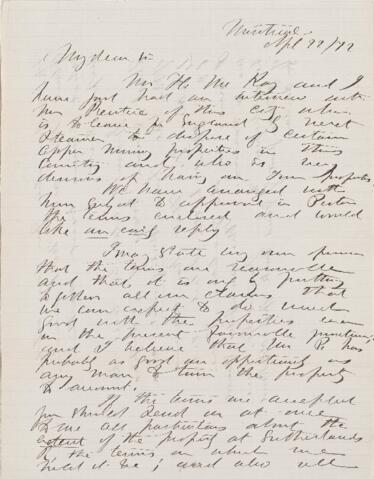 Montreal
Apl 22/72
My dear Sir
Mr Mc Kay and I
have just had an interview with
Mr of this City who
is to leave for England by next
Steamer to dispose of certain
Copper Mining properties in this
County and who is very
desirous of having an Iron property
We have arranged with
him subject to approval in Pictou
the terms enclosed and would
like an early reply
I may state in
that the terms are reasonable
and that it is only by putting
together all our claims that
we can expect to do much
good with the properties even
in the present favorable juncture
and I believe that Mr P. has
probably as good an opportunity as
any man to turn the property
to account.
If the terms are accepted
you should send on at once
to me all particulars about the
extent of the property at Sutherlands
& the terms on which we
hold it &c; and also all